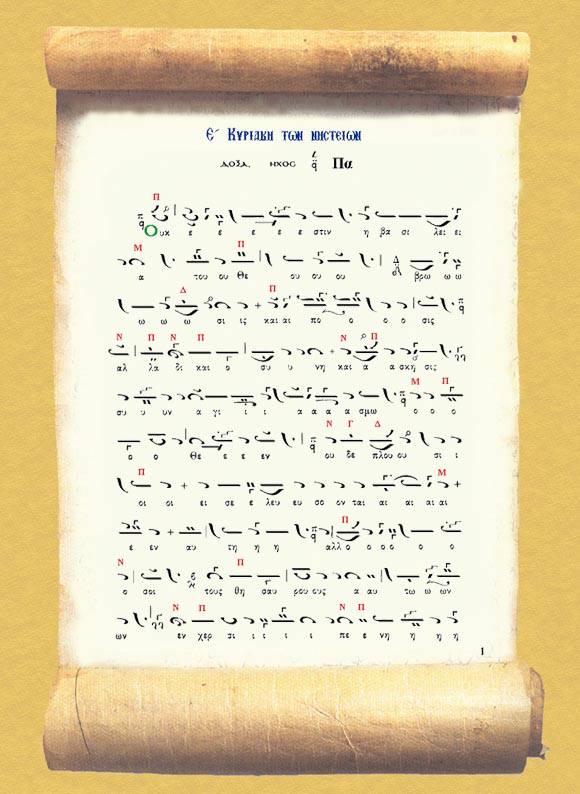 Ε´ Κυριακη των νηστειων
ΔΟΞΑ. ΗΧΟΣ Πα
Π
Ουκ ε ε ε ε ε στιν η βα σι λει ει
Μ Π
α του ου Θε ου ου ου βρω ω ω
Δ Π
ω ω ω σι ις και αι πο ο ο ο σις
Ν Π Ν Π Ν Π
αλ λα δι και ο συ υ νη και α α σκη σις
Μ Π
συ υ υν α γι ι ι α α α α σμω ο ο ο
Ν Γ Δ
ο ο Θε ε ε εν ου δε πλου ου σι ι
Π Μ
οι οι ει σε ε λευ ευ σο ον ται αι αι αι αι
Π
ε εν αυ τη η η αλλ ο ο ο ο ο ο
Ν Π
ο σοι τους θη σαυ ρου ους α αυ τω ω ων
Ν Π Ν Π
ων εν χερ σι ι ι ι πε ε νη η η η
1